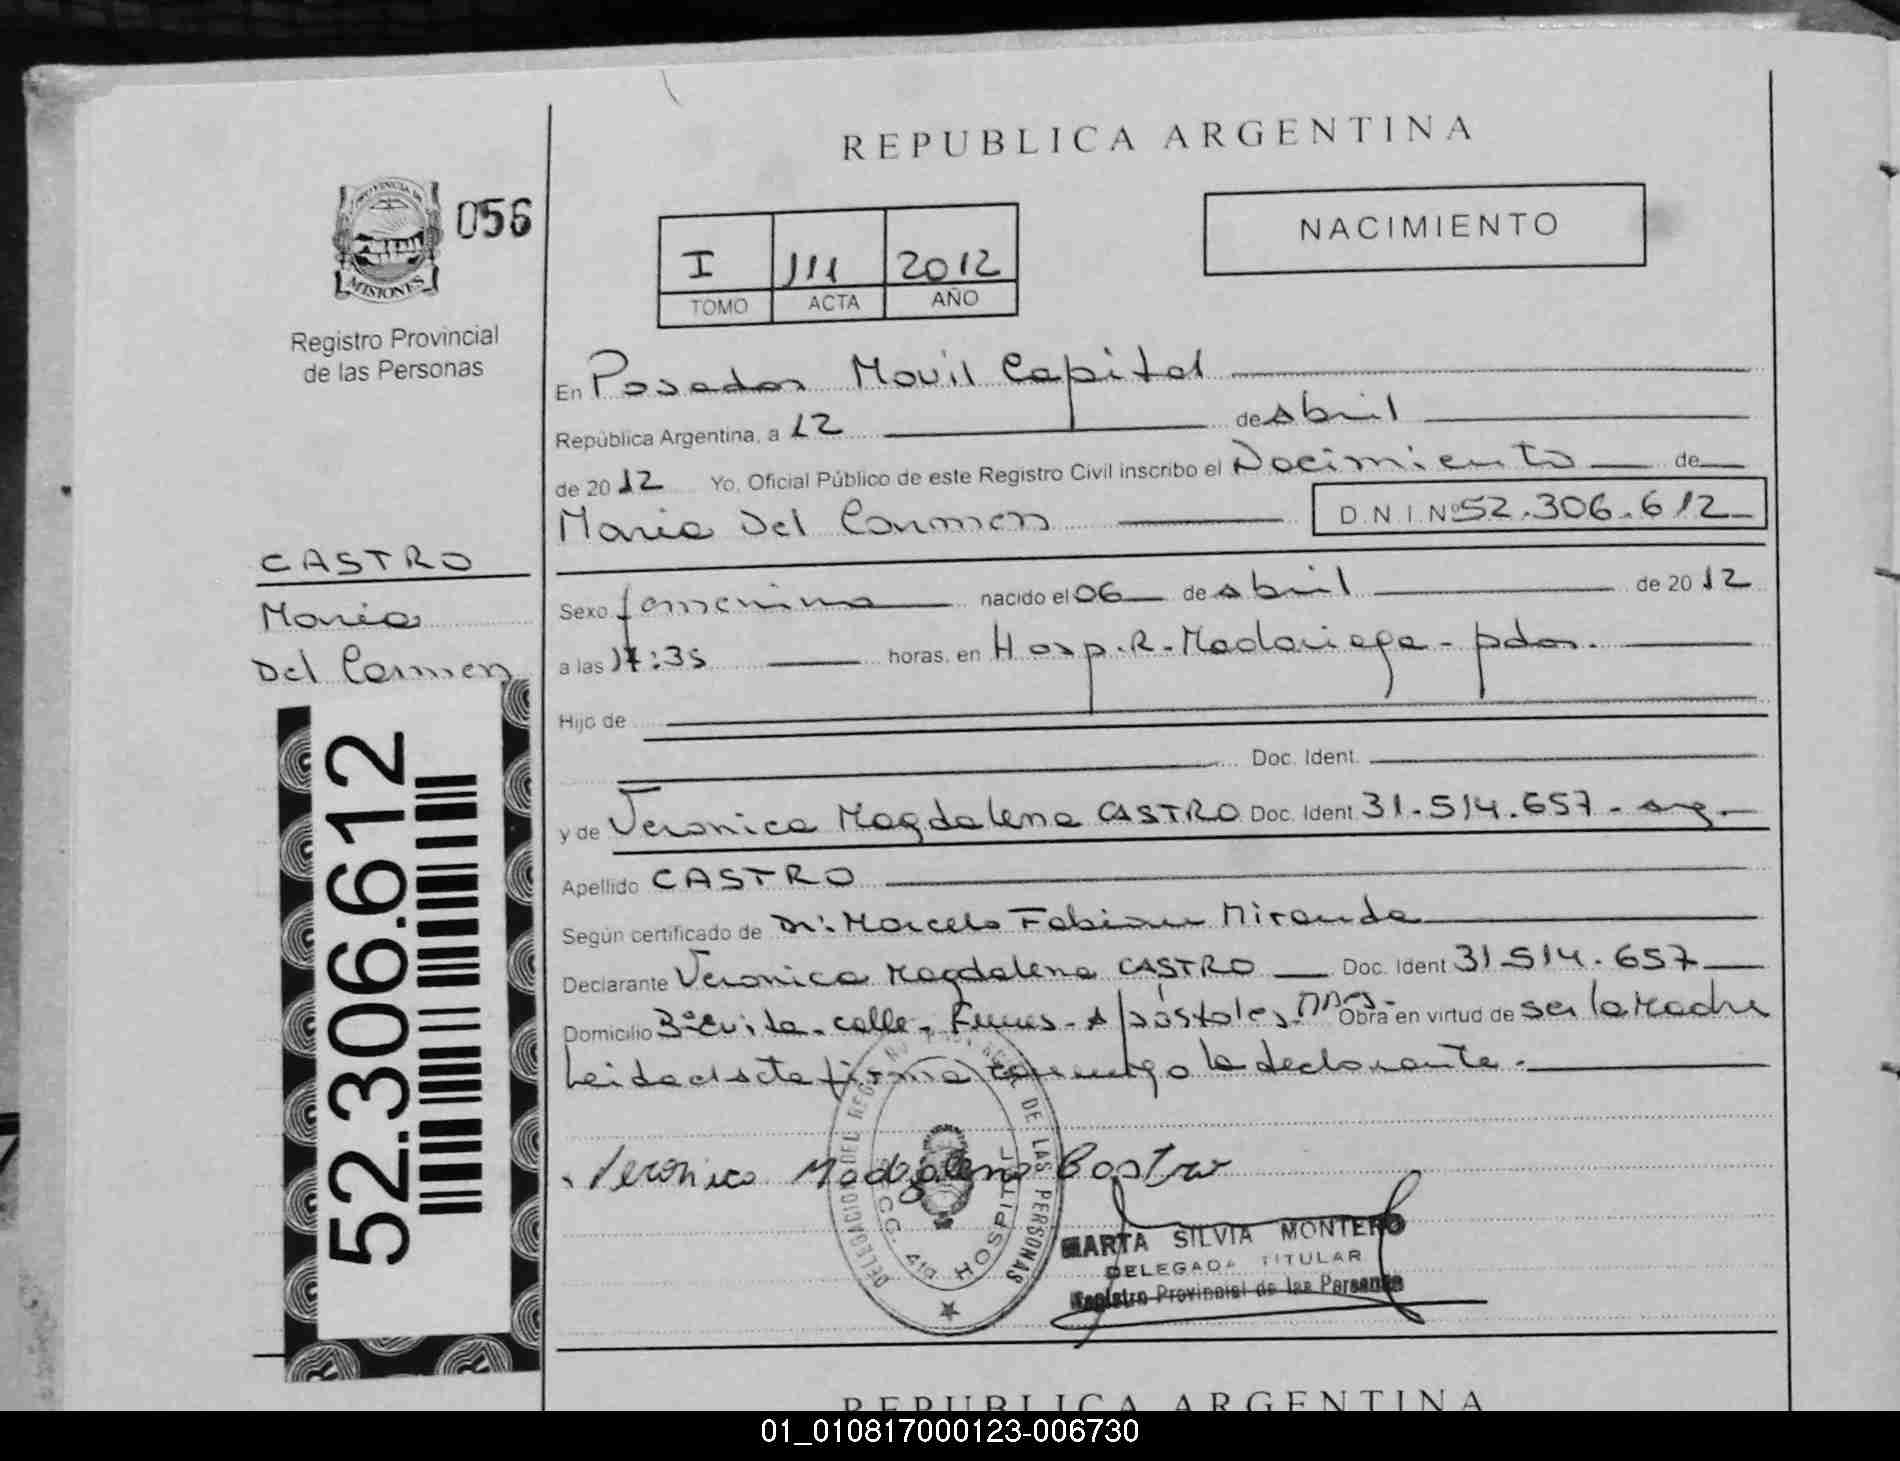 REPUBLICA ARGENTINA
PROVINCIA DE
MISIONES
056
Registro Provincial
de las Personas
I 111 2012
TOMO ACTA AÑO
NACIMIENTO
En Posadas Movil Capital
República Argentina, a 12 de abril
de 2012 Yo, Oficial Público de este Registro Civil inscribo el Nacimiento de
Maria Del Carmen D.N.I. Nº 52.306.612
CASTRO
Maria
Del Carmen
52.306.612
Sexo femenino nacido el 06 de abril de 2012
a las 17:35 horas, en Hosp. R. Madariaga - pdas.
Hijo de
Doc. Ident.
y de Veronica Magdalena CASTRO Doc. Ident 31.514.657 - arg.
Apellido CASTRO
Según certificado de Dr. Marcelo Fabian Miranda
Declarante Veronica Magdalena CASTRO Doc. Ident 31.514.657
Domicilio Bº Evita - calle - Funes - Apóstoles Mnes - Obra en virtud de ser la Madre
Leida el acta firma conmigo la declarante.
Veronica Magdalena Castro
DELEGACIO DEL REG DE LAS PERSONAS
CC. 410 HOSPITAL
MARTA SILVIA MONTERO
DELEGADA TITULAR
Registro Provincial de las Personas
REPUBLICA ARGENTINA
01_010817000123-006730